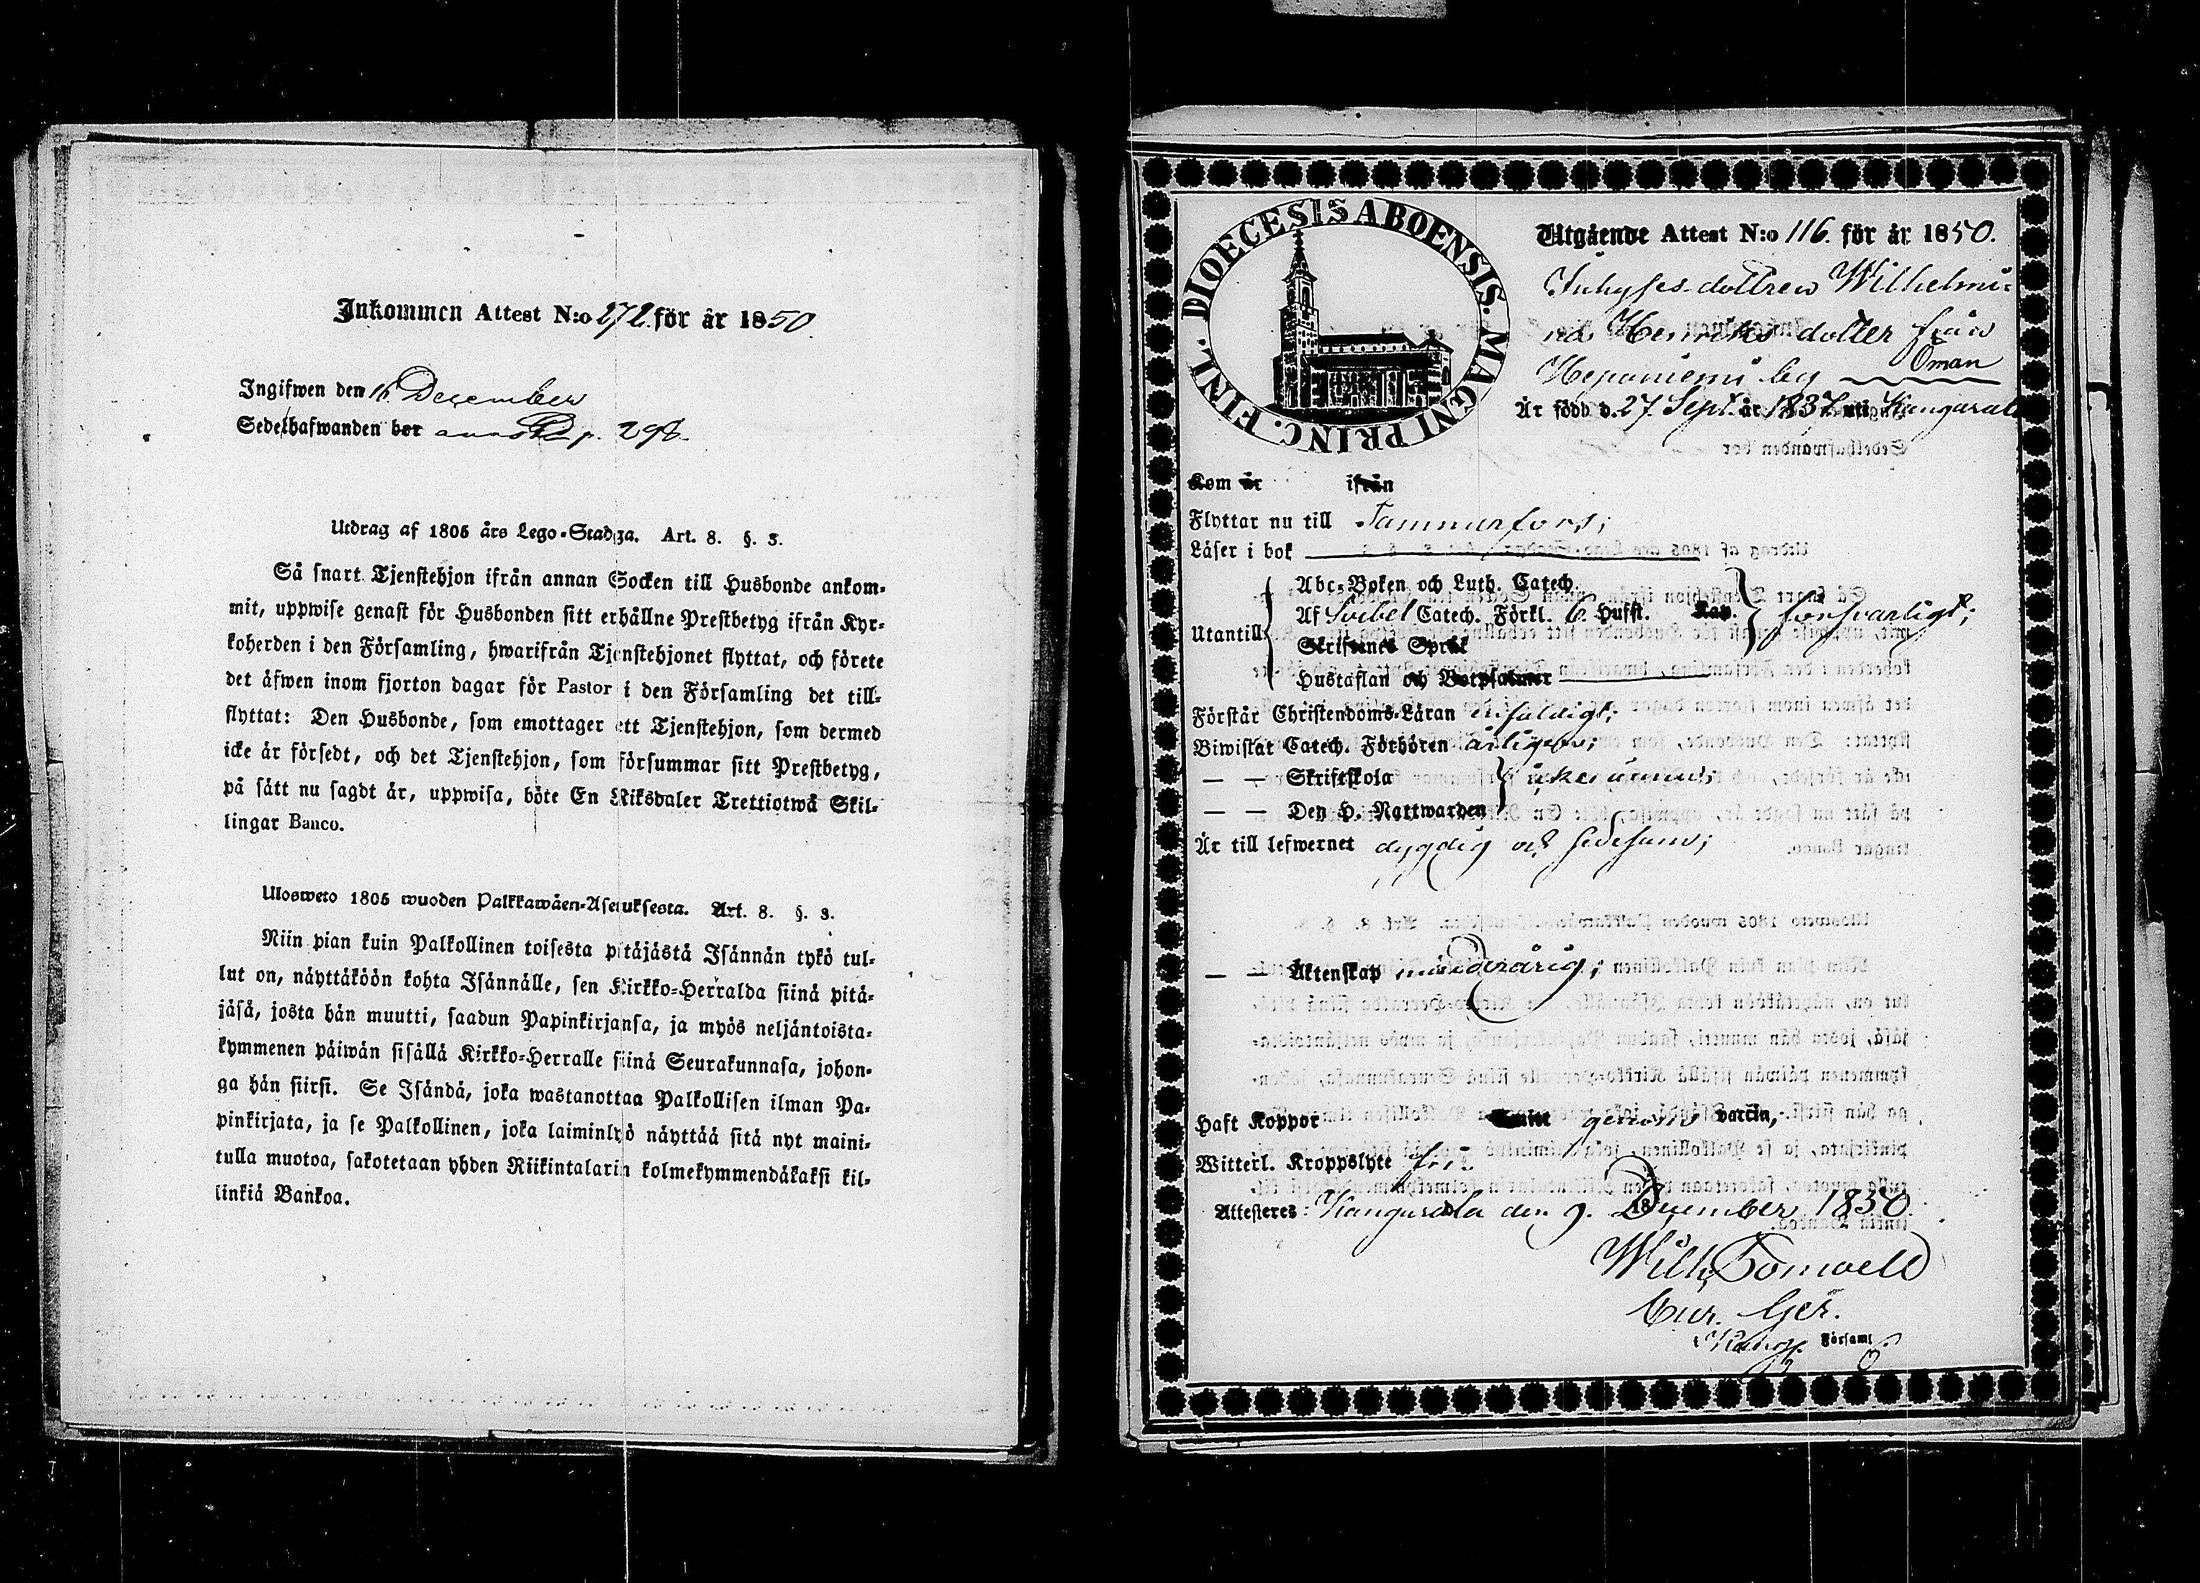 Inkommen Attest N:o 272. för år 1850.
Ingifwen den 16 December
Sedelhafwanden bor p. 298.
Utdrag af 1805 års Lego-Stadga. Art. 8. §. 3.
Så snart Tjenstehjon ifrån annan Socken till Husbonde ankom-
mit, uppwise genast för Husbonden sitt erhållne Prestbetyg ifrån Kyr-
koherden i den Församling, hwarifrån Tjenstehjonet flyttat, och förete
det äfwen inom fjorton dagar för Pastor i den Församling det till-
flyttat: Den Husbonde, som emottager ett Tjenstehjon, som dermed
icke är försedt, och det Tjenstehjon, som försummar sitt Prestbetyg,
på sätt nu sagdt är, uppwisa, böte En Riksdaler Trettiotwå Skil-
lingar Banco.
Ulosweto 1805 wuoden Palkkawäen-Asetuksesta. Art. 8. §. 3.
Niin pian kuin Palkollinen toisesta pitäjästä Isännän tykö tul-
lut on, näyttäköön kohta Isännälle, sen Kirkko-Herralda siinä pitä-
jäsä, josta hän muutti, saadun Papinkirjansa, ja myös neljäntoista-
kymmenen päiwän sisällä Kirkko-Herralle siinä Seurakunnasa, johon-
ga hän siirsi. Se Isändä, joka wastanottaa Palkollisen ilman Pa-
pinkirjata, ja se Palkollinen, joka laiminlyö näyttää sitä nyt maini-
tulla muotoa, sakotetaan yhden Riikintalarin kolmekymmendäkaksi kil-
linkiä Bankoa.
DIOECESIS ABOENSIS. MAGNI PRINC. FINL.
Utgående Attest N:o 116. för år 1850.
Inhyses dottren Wilhelmi-
na Henriksdotter från
Heponiemi by Öman
Är född d. 27 Sept. år 1837 uti Kangasala
Kom år ifrån
Flyttar nu till Tammerfors;
Läser i bok
Utantill
Abc-Boken och Luth. Catech.
Af Svebel Catech. Förkl. 6. Hufst. Kap. försvarligt;
Skriftenes Språk
Hustaflan och Botpsalmer
Förstår Christendoms-Läran enfaldigt;
Biwistat Catech. Förhören årligen;
— — Skriftskola icke ännu;
— — Den H. Nattwarden
Är till lefwernet dygdig och sedesam;
— — Äktenskap minderårig;
Haft Koppor genom vaccin,
Witterl. Kroppslyte fri.
Attesteres: Kangasala den 9. December 1850.
Wilh.
Cur. Ger.
i Kang. Församl.